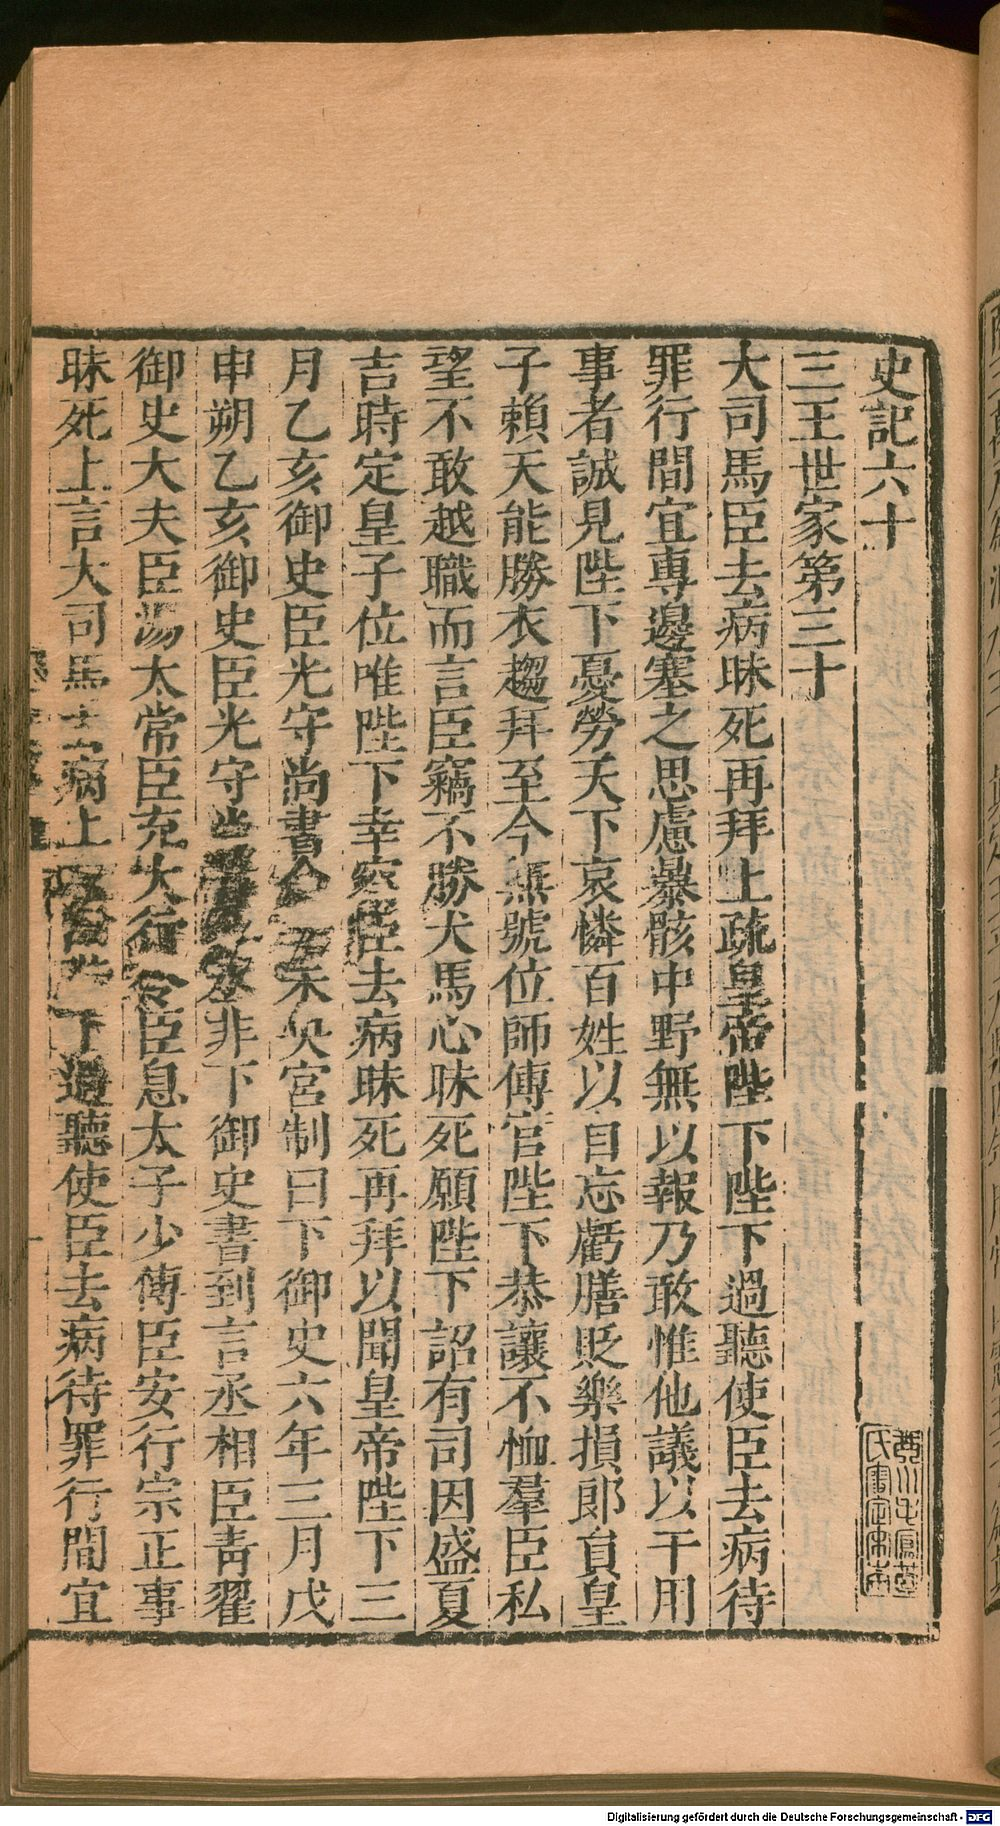 史記六十
三王世家第三十
大司馬臣去病昧死再拜上疏皇帝陛下陛下過聽使臣去病待
罪行間宜專邊塞之思慮暴骸中野無以報乃敢惟他議以干用
事者誠見陛下憂勞天下哀憐百姓以自忘虧膳貶樂損郎員皇
子賴天能勝衣趨拜至今無號位師傅官陛下恭讓不恤羣臣私
望不敢越職而言臣竊不勝犬馬心昧死願陛下詔有司因盛夏
吉時定皇子位唯陛下幸察臣去病昧死再拜以聞皇帝陛下三
月乙亥御史臣光守尚書令未央宮制曰下御史六年三月戊
申朔乙亥御史臣光守尚丞非下御史書到言丞相臣青翟
御史大夫臣湯太常臣充大行令臣息太子少傅臣安行宗正事
昧死上言大司馬去病上下過聽使臣去病待罪行間宜
Digitalisierung gefördert durch die Deutsche Forschungsgemeinschaft - DFG